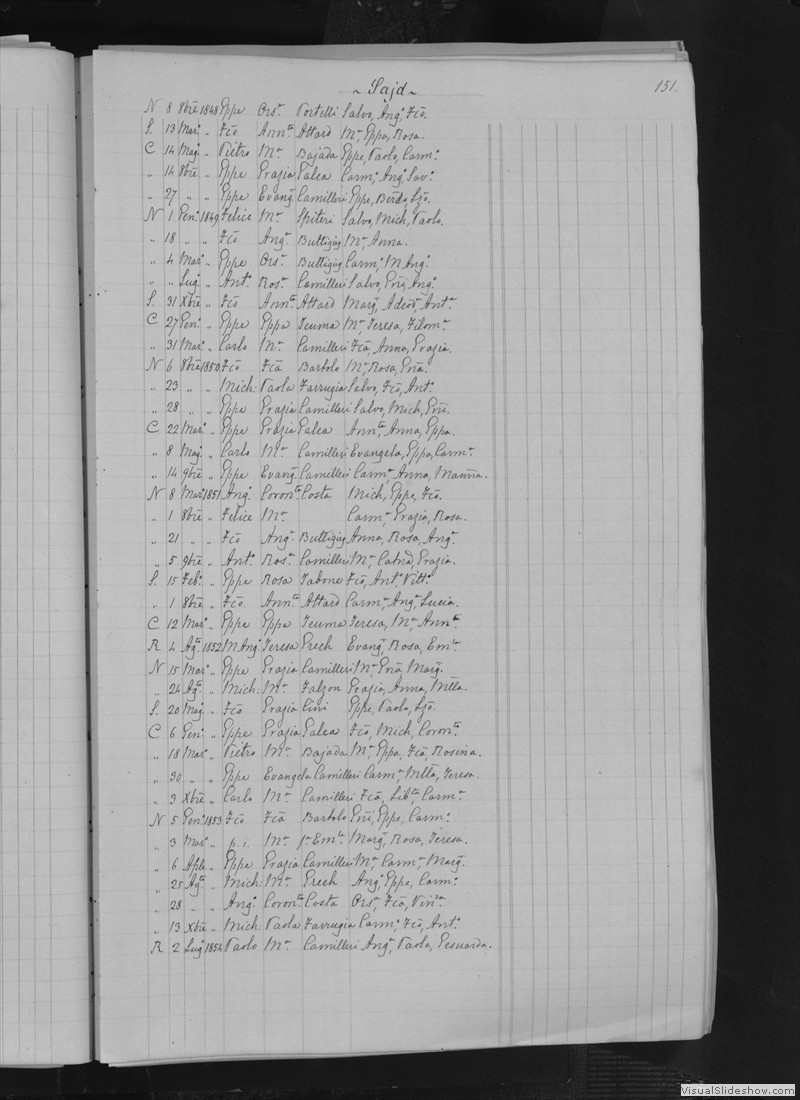 ~ Sajd ~ 151.
N 8 8bre 1848 Eppe Ors.a Portelli Salvo, Ang.o Fco.
S. 13 Mar.o " Fco Ann.ta Attard M.a, Eppa, Rosa.
C 14 Mag.o " Pietro M.a Bajada Eppe, Paolo, Carm.o
" 14 8bre " Eppe Grazia Galea Carm.o, Ang.o Sav.o
" 27 " " Eppe Evang.a Camilleri Eppe, Berdo, Lzo.
N 1 Gen.o 1849 Felice M.a Spiteri Salvo, Mich, Paolo.
" 18 " " Fco Ang.a Buttigieg M.a, Anna.
" 4 Mar.o " Eppe Ors.a Buttigieg Carm.o, M Ang.o
" " Lug.o " Ant.o Ros.a Camilleri Salvo, Enri, Ang.o
S. 31 Xbre " Fco Ann.ta Attard Marg.a, Adeod.a, Ant.a
C 27 Gen.o " Eppe Eppa Teuma M.a, Teresa, Filom.a
" 31 Mar.o " Carlo M.a Camilleri Fca, Anna, Grazia.
N 6 8bre 1850 Fco Fca Bartolo M.a, Rosa, Enra.
" 23 " " Mich: Paola Farrugia Salvo, Fco, Ant.o
" 28 " " Eppe Grazia Camilleri Salvo, Mich, Enri.
C 22 Mar.o " Eppe Grazia Galea Ann.ta, Anna, Eppa.
" 8 Mag.o " Carlo M.a Camilleri Evangela, Eppa, Carm.a
" 14 9bre " Eppe Evang.a Camilleri Carm.a, Anna, Marina.
N 8 Mar.o 1851 Ang.o Coron.ta Costa Mich, Eppe, Fco.
" 1 8bre " Felice M.a Carm.a, Grazia, Rosa.
" 21 " " Fco Ang.a Buttigieg Anna, Rosa, Ang.a
" 5 9bre " Ant.o Ros.a Camilleri M.a, Catna, Grazia.
S. 15 Feb.o " Eppe Rosa Tabone Fco, Ant.o, Vitt.o
" 1 8bre " Fco Ann.ta Attard Carm.a, Ang.a, Lucia.
C 12 Mar.o " Eppe Eppa Teuma Teresa, M.a, Ann.ta
R 4 Ag.to 1852 M Ang.o Teresa Grech Evang.a, Rosa, Em.la
N 15 Mar.o " Eppe Grazia Camilleri M.a, Enra, Marg.a
" 24 Ag.to " Mich: M.a Falzon Grazia, Anna, Mtta.
S. 20 Mag.o " Fco Grazia Cini Eppe, Paolo, Lzo.
C 6 Gen.o " Eppe Grazia Galea Fco, Mich, Coron.to
" 18 Mar.o " Pietro M.a Bajada M.a, Eppa, Fca, Rosina.
" 30 " " Eppe Evangela Camilleri Carm.a, Mtta, Teresa.
" 3 Xbre " Carlo M.a Camilleri Fca, Lib.ta, Carm.a
N 5 Gen.o 1853 Fco Fca Bartolo Enri, Eppe, Carm.o
" 3 Mar.o " p. i. M.a Em.la Marg.a, Rosa, Teresa.
" 6 Aple " Eppe Grazia Camilleri M.a, Carm.a, Marg.a
" 25 Ag.to " Mich: M.a Grech Ang.o, Eppe, Carm.o
" 28 " " Ang.o Coron.ta Costa Ors.a, Fca, Vin.za
" 13 Xbre " Mich: Paola Farrugia Carm.o, Fco, Ant.o
R 2 Lug.o 1854 Paolo M.a Camilleri Ang.a, Paola, Gesuarda.
VisualSlideshow.com